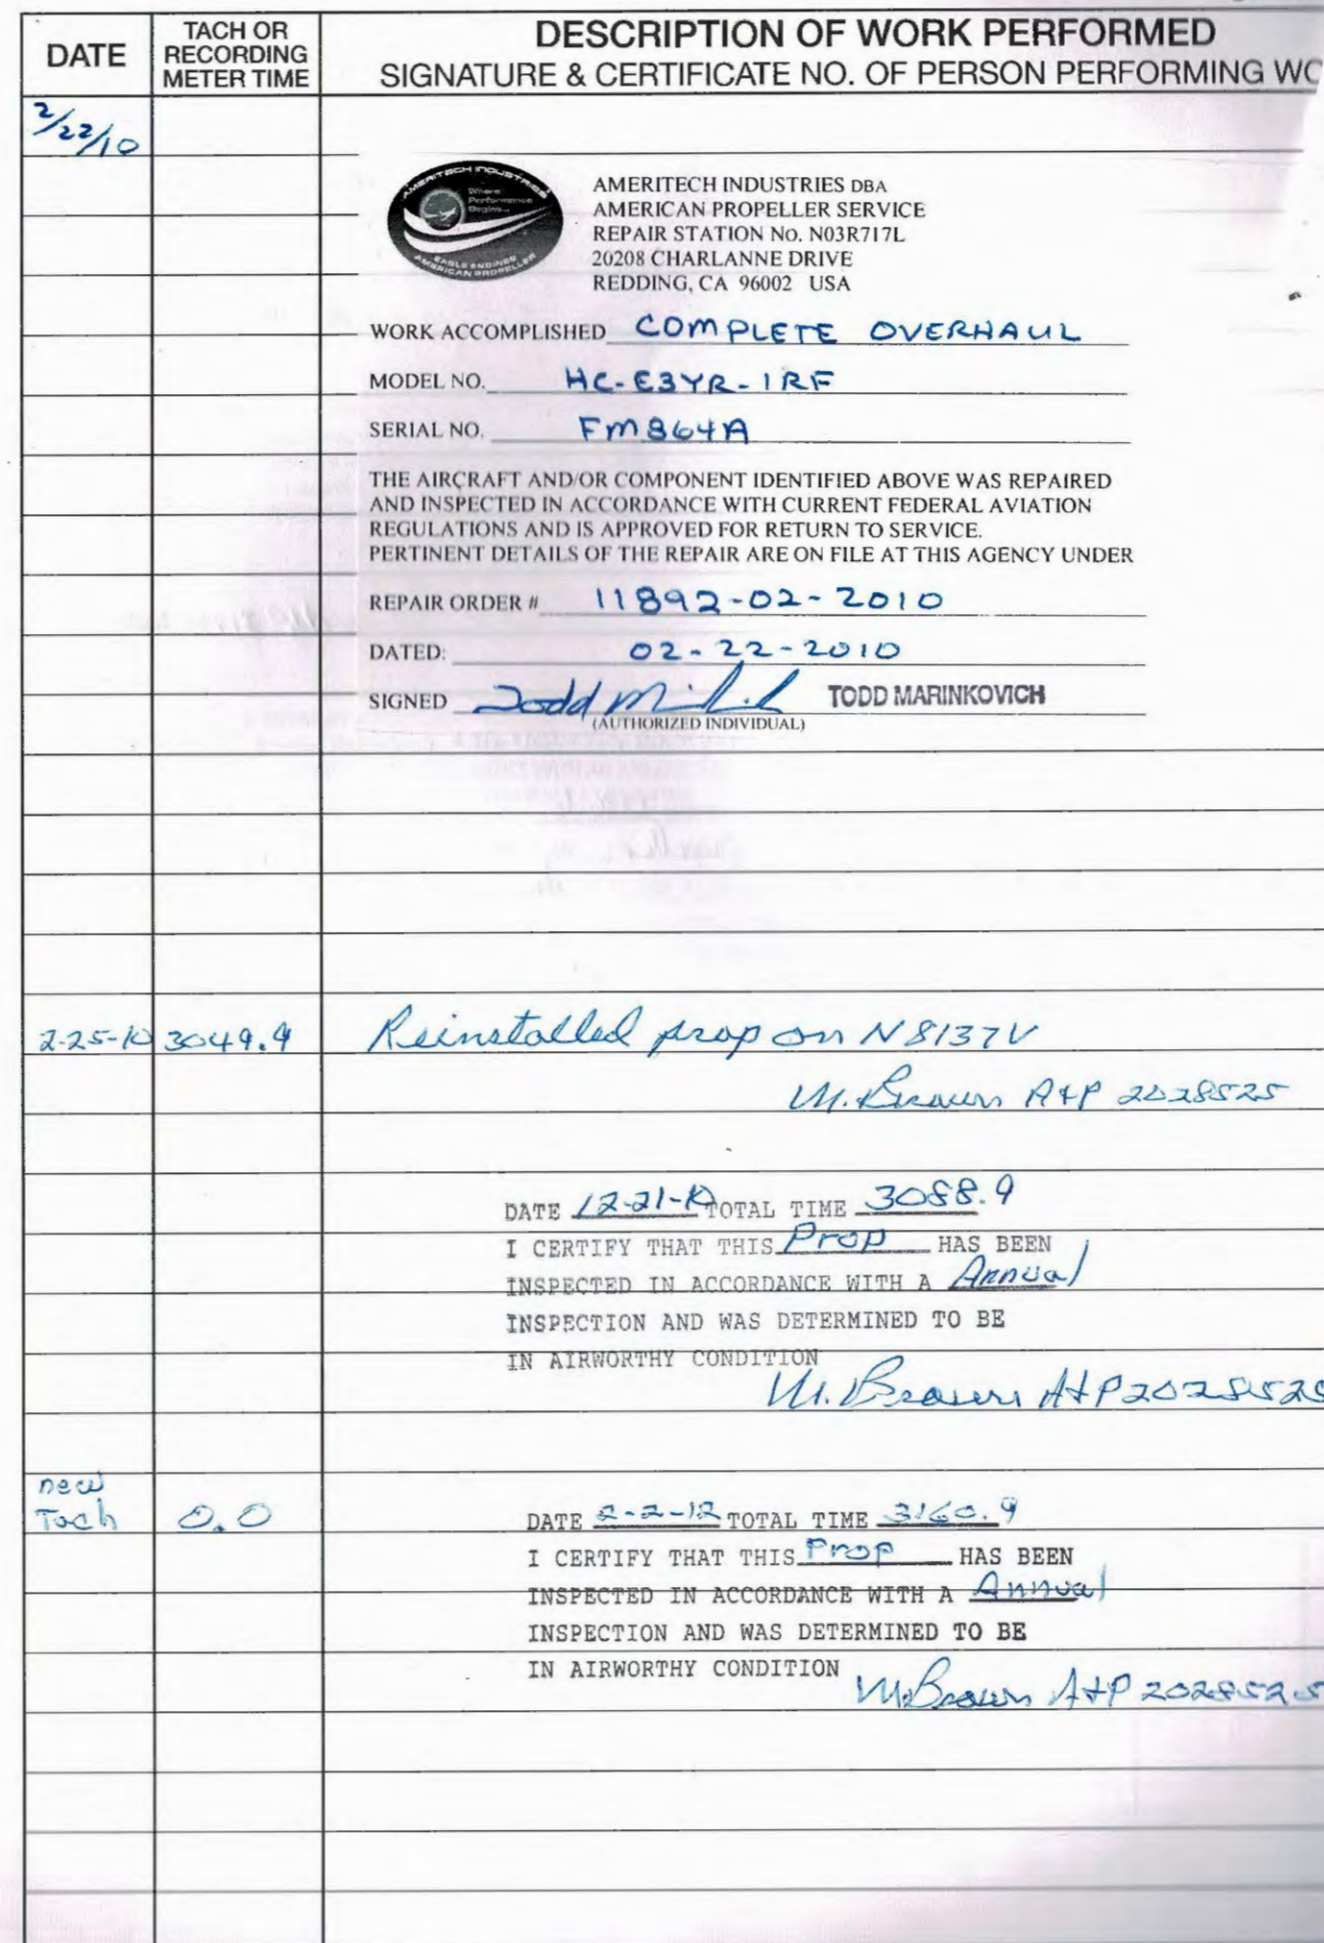 DATE
TACH OR
RECORDING
METER TIME
DESCRIPTION OF WORK PERFORMED
SIGNATURE & CERTIFICATE NO. OF PERSON PERFORMING WO
2/22/10
AMERITECH INDUSTRIES
Where
Performance
Begins...
EAGLE ENGINES
AMERICAN PROPELLER
AMERITECH INDUSTRIES DBA
AMERICAN PROPELLER SERVICE
REPAIR STATION No. N03R717L
20208 CHARLANNE DRIVE
REDDING, CA 96002 USA
WORK ACCOMPLISHED COMPLETE OVERHAUL
MODEL NO. HC-E3YR-1RF
SERIAL NO. FM864A
THE AIRCRAFT AND/OR COMPONENT IDENTIFIED ABOVE WAS REPAIRED
AND INSPECTED IN ACCORDANCE WITH CURRENT FEDERAL AVIATION
REGULATIONS AND IS APPROVED FOR RETURN TO SERVICE.
PERTINENT DETAILS OF THE REPAIR ARE ON FILE AT THIS AGENCY UNDER
REPAIR ORDER # 11892-02-2010
DATED: 02-22-2010
SIGNED Todd TODD MARINKOVICH
(AUTHORIZED INDIVIDUAL)
2-25-10 3049.9 Reinstalled prop on N8137V
M. Brown A+P 2028525
DATE 12-21-10 TOTAL TIME 3088.9
I CERTIFY THAT THIS Prop HAS BEEN
INSPECTED IN ACCORDANCE WITH A Annual
INSPECTION AND WAS DETERMINED TO BE
IN AIRWORTHY CONDITION
M. Brown A+P 2028525
new
Tach 0.0
DATE 2-2-12 TOTAL TIME 3160.9
I CERTIFY THAT THIS Prop HAS BEEN
INSPECTED IN ACCORDANCE WITH A Annual
INSPECTION AND WAS DETERMINED TO BE
IN AIRWORTHY CONDITION
M. Brown A+P 2028525